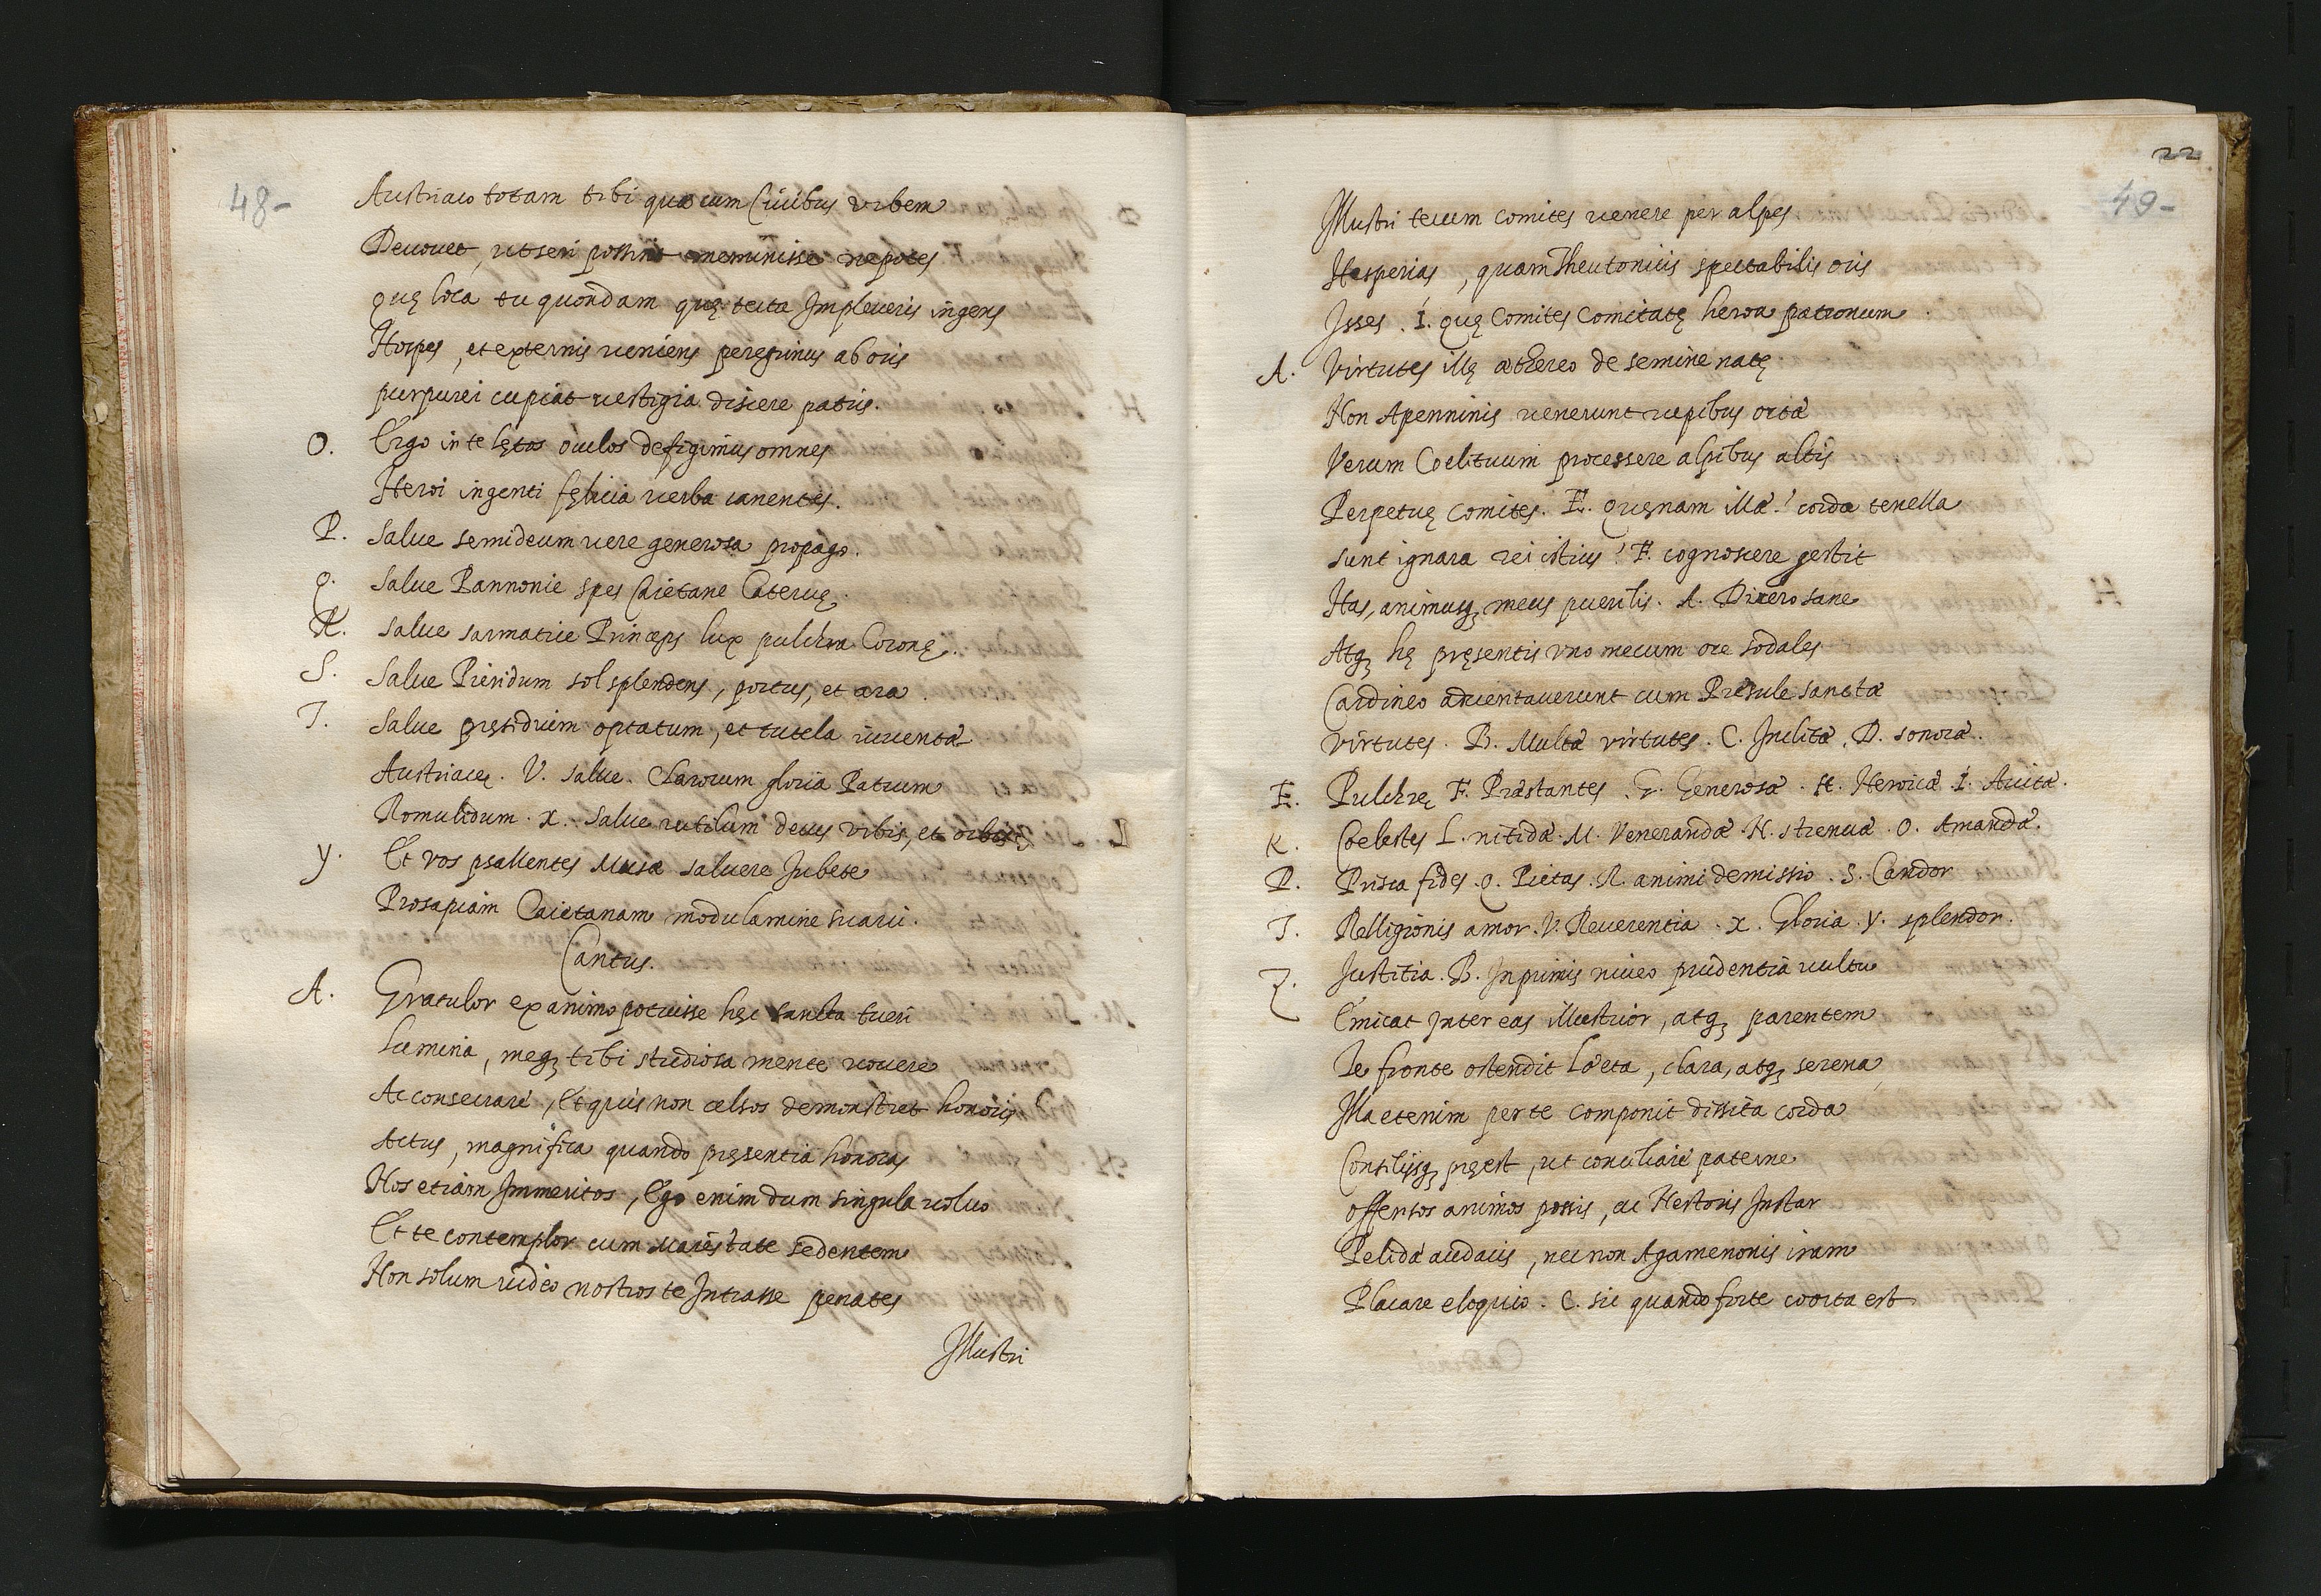 48-
Austriaco totam tibi quæ cum Ciuibus vrbem
Deuouet, ut seri possint meminisse nepotes
quę loca tu quondam quę tecta Impleueris ingens
Hospes, et externis ueniens peregrinus ab oris
purpurei cupiat uestigia discere patris.
O. Ergo in te lętos oculos defigimus omnes
Heroi ingenti fęlicia uerba canentes.
P. Salue semideum uere generosa propago.
Q. Salue Pannonie spes Caietane Cateruę.
R. Salue sarmatice Princeps lux pulchra Coronę.
S. Salue Pieridum sol splendens, portus, et ara.
T. Salue pręsidium optatum, et tutela iuuentæ
Austriacę. V. Salue. Clarorum gloria Patrum
Romulidum. x. Salue rutilum decus vrbis, et orbis.
y. Et vos psallentes Musæ saluere Jubete
Prosapiam Caietanam modulamine suaui.
Cantus.
A. Gratulor ex animo potuisse hęc sancta tueri
Lumina, meq; tibi studiosa mente uouere
Ac consecrare, Et quis non celsos demonstret honoris
Actus, magnifica quando pręsentia honoras
Nos etiam Immeritos, Ego enim dum singula uoluo
Et te contemplor cum Maiestate sedentem
Non solum uideo nostros te Intrasse penates
Illustri
22
49-
Illustri tecum comites uenere per alpes
Hesperias, quam Theutonicis spectabilis oris
Isses. I. quę Comites Comitatę heroa patronum.
A. Virtutes illę æthereo de semine natę
Non Apenninis uenerunt rupibus ortæ
Verum Coelituum processere alpibus altis
Perpetuę comites. E. quęnam illæ! corda tenella
sunt ignara rei istius! F. cognoscere gestit
Has, animusq; meus puerilis. A. Dicero sane
Atq; hę pręsentis vno mecum ore sodales
Cardineo aduentauerunt cum Præsule sanctæ
Virtutes. B. Multæ virtutes. C. Inclitæ. D. sonoræ.
E. Pulchrę F. Præstantes. G. Generosæ. H. Heroicæ. I. Auitæ.
K. Coelestes L. nitidæ. M. Venerandæ. N. strenuæ. O. Amandæ.
P. Prisca fides. Q. Pietas. R. animi demissio. S. Candor
T. Relligionis amor. V. Reuerentia. x. Gloria. y. splendor.
Z. Justitia. B. Inprimis niueo prudentia uultu
Emicat Inter eas illustrior, atq; parentem
Te fronte ostendit læta, clara, atq; serena
Illa etenim per te componit dissita corda
Consilijsq; pręest, ut conciliare paterne
offensos animos possis, ac Nestoris Instar
Pelidæ audacis, nec non Agamenonis iram
Placare eloquio. C. sic quando forte coorta est